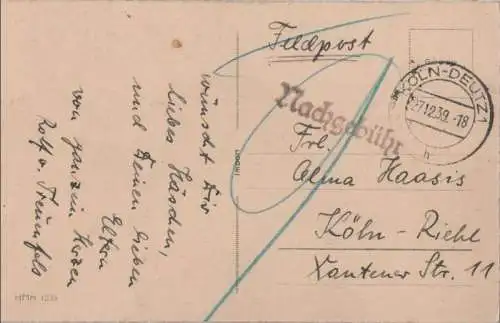 wünscht Dir
liebes Häschen,
und Deinen lieben
Eltern
von ganzem Herzen
Rolf v.
HMH
Feldpost
Nachgebühr
KÖLN-DEUTZ 1
27.12.39.-18
h
Frl.
Alma Haasis
Köln-Riehl
Xantener Str. 11